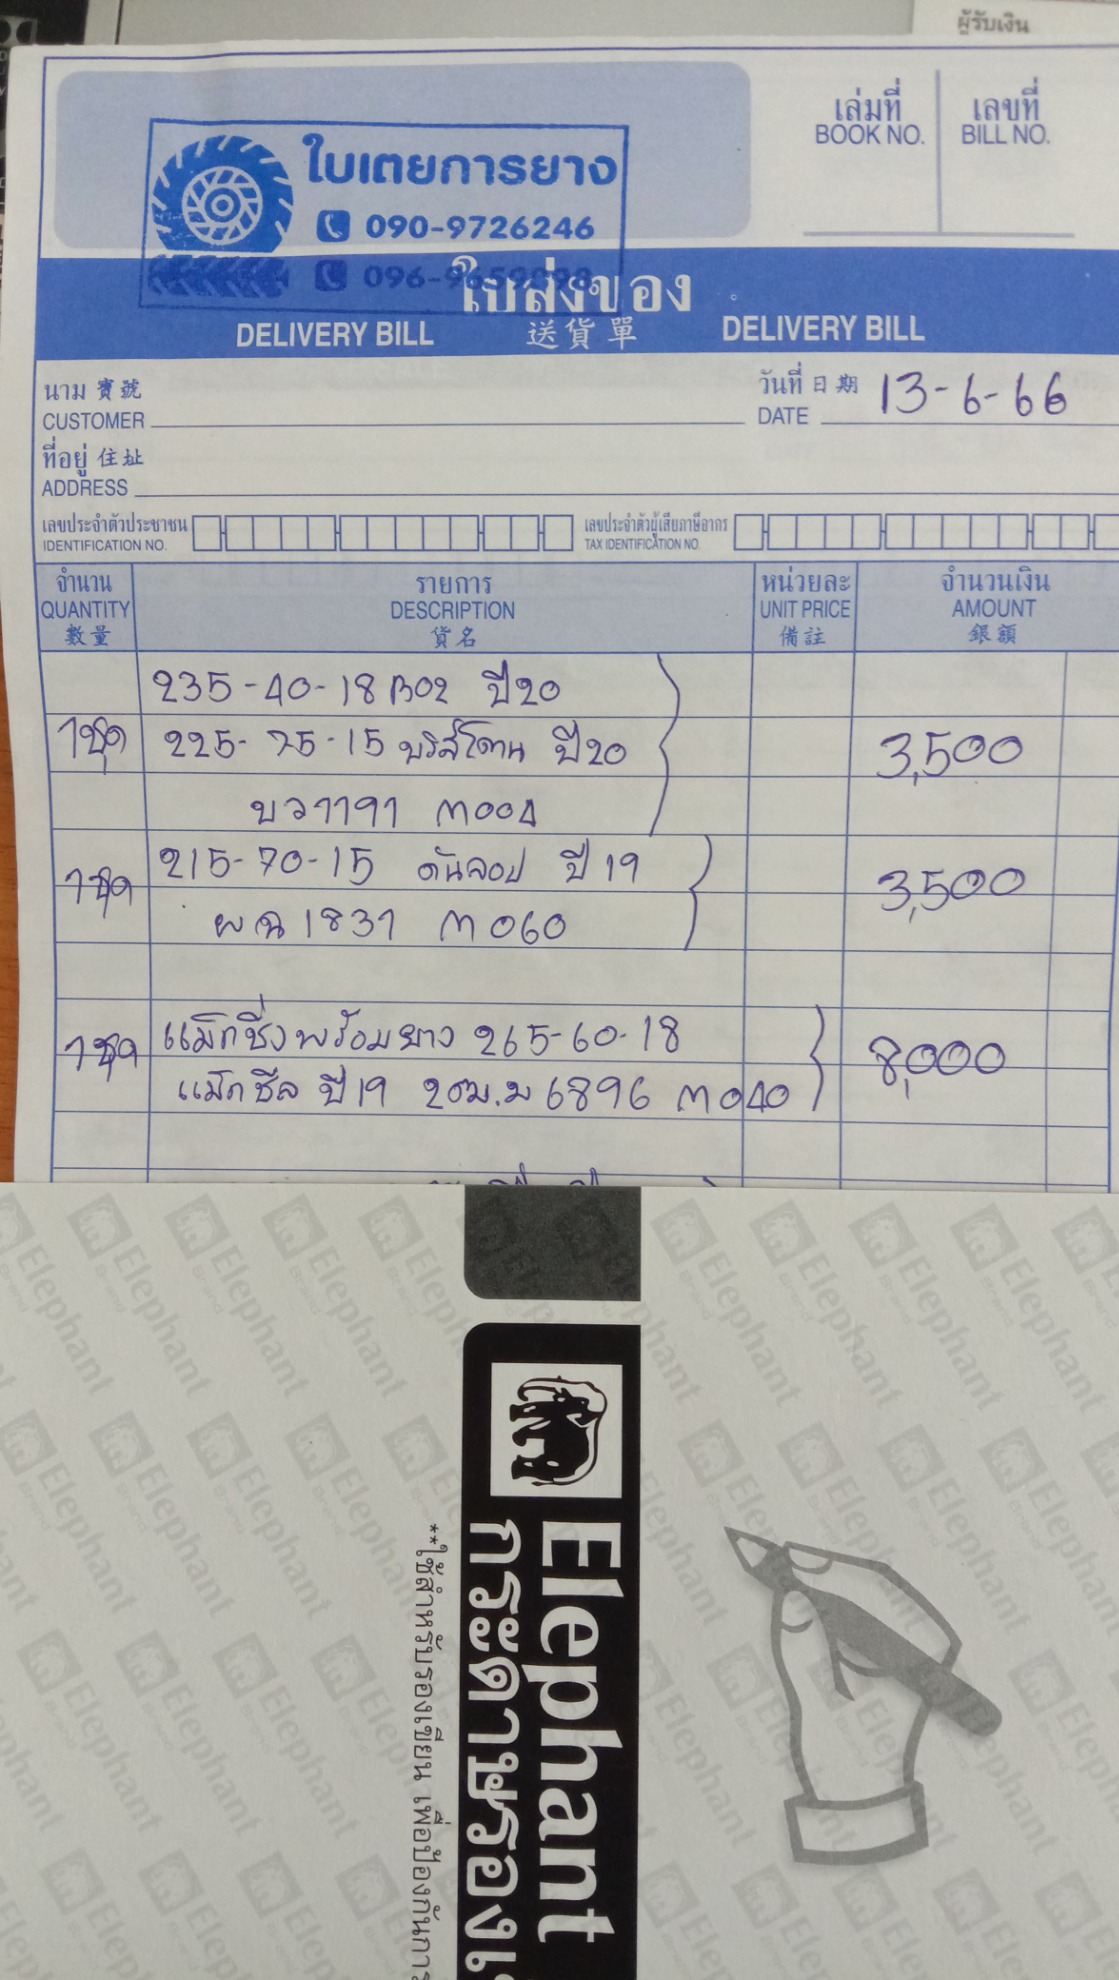 ผู้รับเงิน
เล่มที่
BOOK NO.
เลขที่
BILL NO.
ใบเตยการยาง
090-9726246
096-9659898
ใบส่งของ
DELIVERY BILL 送貨單 DELIVERY BILL
นาม 寶號
CUSTOMER
วันที่ 日期 13-6-66
DATE
ที่อยู่ 住址
ADDRESS
เลขประจำตัวประชาชน
IDENTIFICATION NO.
เลขประจำตัวผู้เสียภาษีอากร
TAX IDENTIFICATION NO.
จำนวน รายการ หน่วยละ จำนวนเงิน
QUANTITY DESCRIPTION UNIT PRICE AMOUNT
數量 貨名 備註 銀額
235-40-18 BO2 ปี20
1ชุด 225-75-15 บริสโตน ปี20 3,500
บว1191 ทอ04
1ชุด 215-70-15 ดันลอป ปี 19 3,500
ผฉ 1831 ทO60
แม็กซิ่งพร้อมยาง 265-60-18
1ชุด 8,000
แม็กซีล ปี19 2ฒม 6896 ทO40
Elephant
Elephant
กระดาษรองเ
**ใช้สำหรับรองเขียน เพื่อป้องกันการ